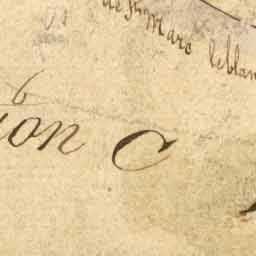 de Sr Marc leblan
6
ion C